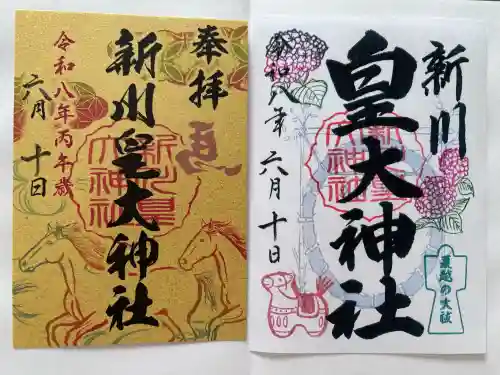 奉拝
新川皇大神社
令和八年丙午歳
六月十日
馬
新川皇大神社
新川
皇大神社
令和八年 六月十日
新川皇大神社
夏越の大祓